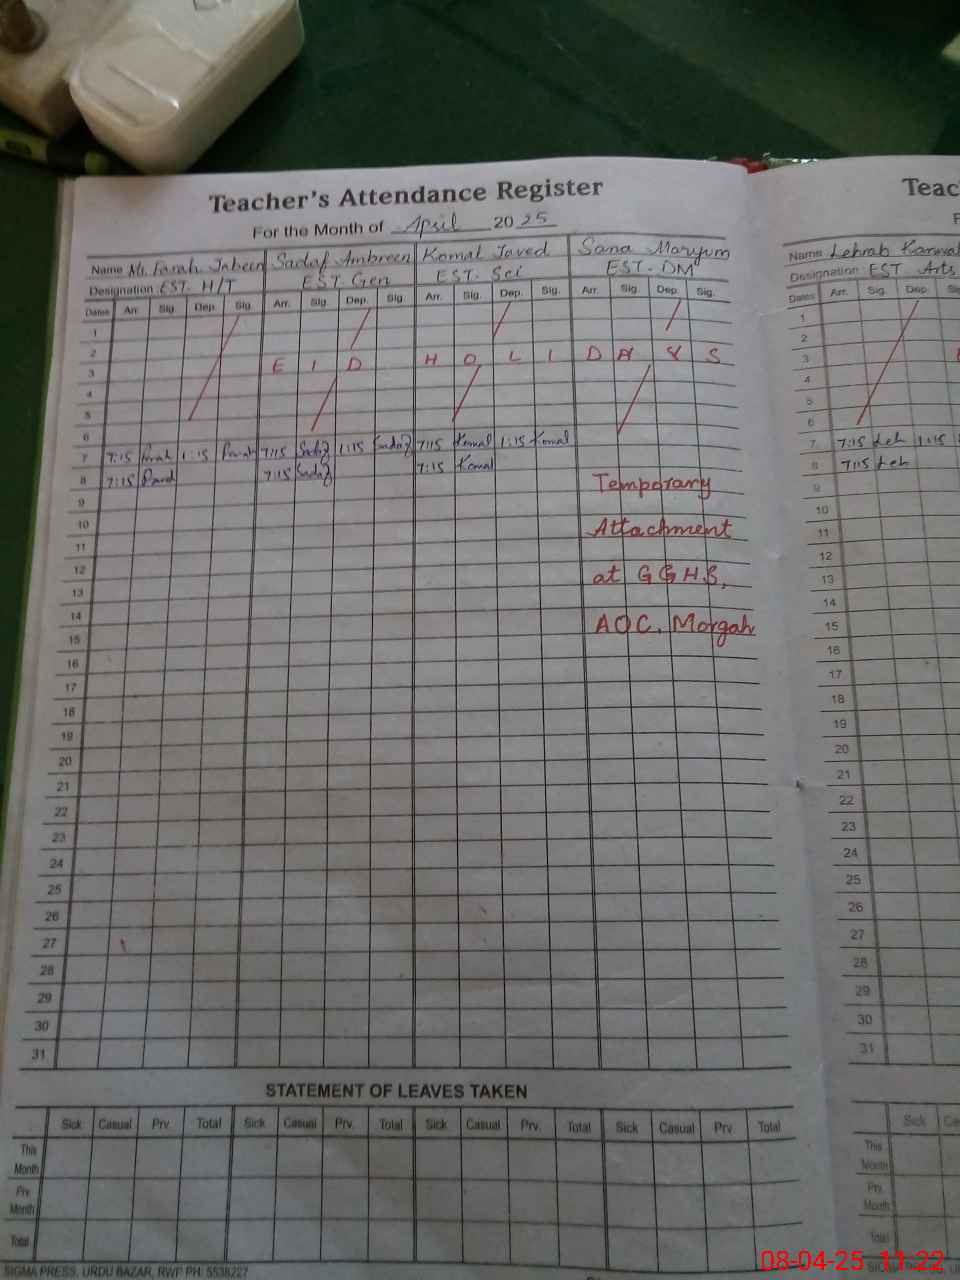 Teacher's Attendance Register
For the Month of April 2025
Name Ms. Farah Jabeen Sadaf Ambreen Komal Javed Sana Maryum
Designation EST. H/T EST. Gen EST. Sci EST. DM
Dates Arr. Sig. Dep. Sig. Arr. Sig. Dep. Sig. Arr. Sig. Dep. Sig. Arr. Sig. Dep. Sig.
1
2
3 E I D H O L I D A Y S
4
5
6
7 7:15 Farah 1:15 Farah 7:15 Sadaf 1:15 Sadaf 7:15 Komal 1:15 Komal
8 7:15 7:15 Sadaf 7:15 Komal
9 Temporary
10
11 Attachment
12
13 at G G H S,
14
15 A O C, Morgah
16
17
18
19
20
21
22
23
24
25
26
27
28
29
30
31
STATEMENT OF LEAVES TAKEN
Sick Casual Prv. Total Sick Casual Prv. Total Sick Casual Prv. Total Sick Casual Prv. Total
This Month
Prv. Month
Total
SIGMA PRESS, URDU BAZAR, RWP PH: 5538227
Teac
F
Name Lehrab Kanwal
Designation EST Arts
Dates Arr. Sig. Dep.
1
2
3
4
5
6
7 7:15 Leh 1:15
8 7:15 Leh
9
10
11
12
13
14
15
16
17
18
19
20
21
22
23
24
25
26
27
28
29
30
31
Sick Ca
This Month
Prv. Month
Total
08-04-25 11:22